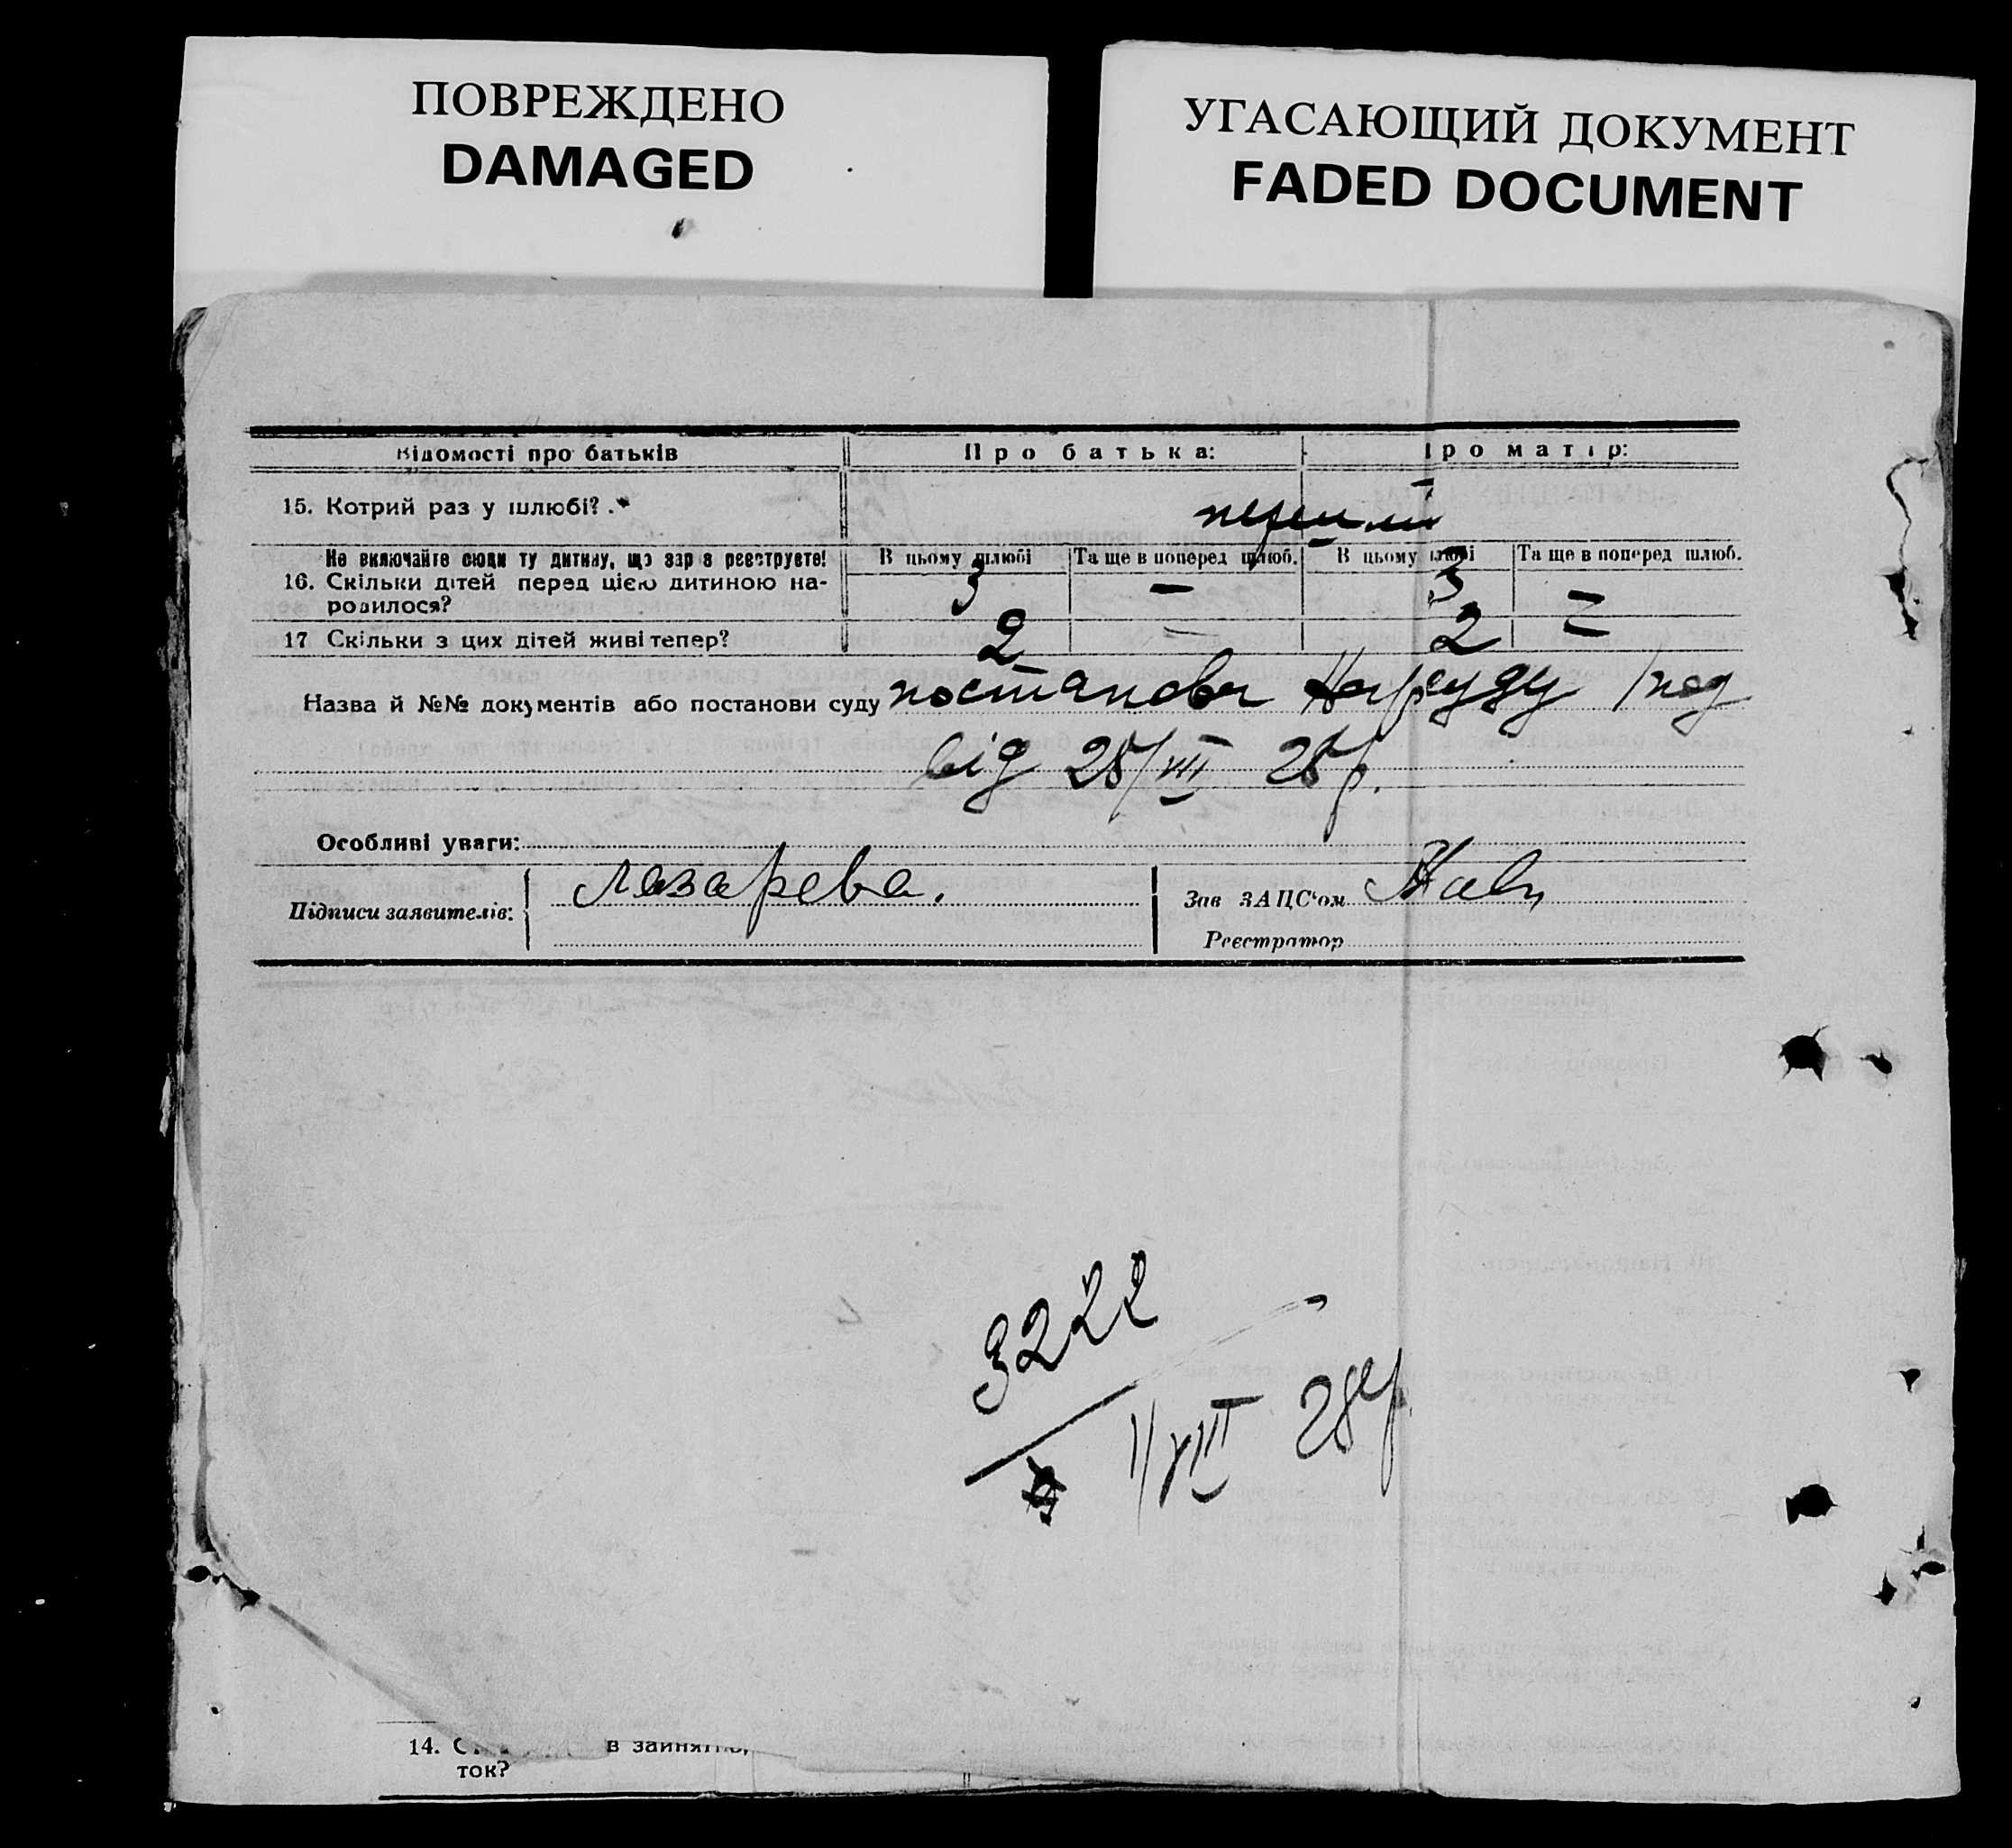 ПОВРЕЖДЕНО
DAMAGED
УГАСАЮЩИЙ ДОКУМЕНТ
FADED DOCUMENT
Відомості про батьків
Про батька:
Про матір:
15. Котрий раз у шлюбі?
первый
Не включайте сюди ту дитину, що зараз реєструєте!
В цьому шлюбі
Та ще в поперед шлюб.
В цьому шлюбі
Та ще в поперед шлюб.
16. Скільки дітей перед цією дитиною на-
родилося?
3 — 3 =
17 Скільки з цих дітей живі тепер?
2 = 2
Назва й №№ документів або постанови суду постанова Нарсуду
від 28/VIII 28р.
Особливі уваги:
Підписи заявителів:
Лазарева.
Зав ЗАЦС'ом
Реєстратор
3222
1/VIII 28р
14.
в зайнят
ток?